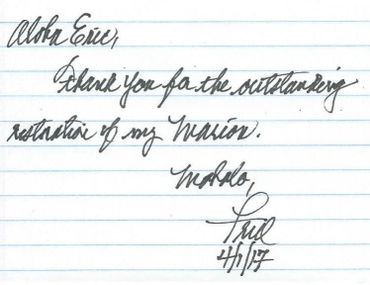 Aloha Eric,
Thank you for the outstanding
restoration of my Marion.
Mahalo,
Fred
4/1/17